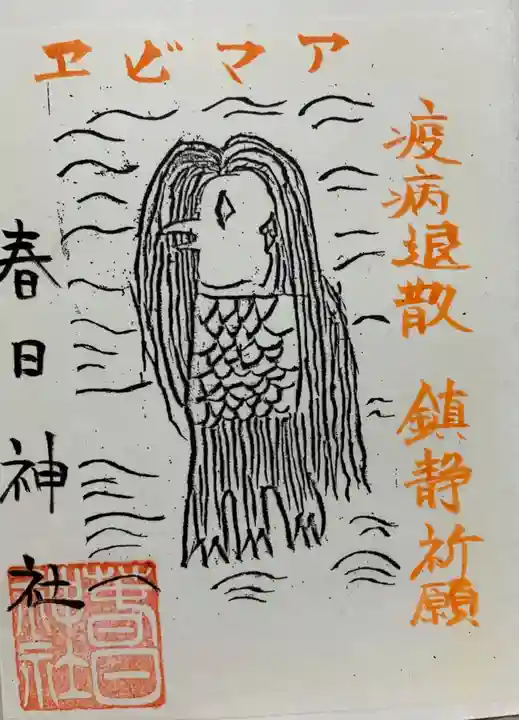 アマビヱ
疫病退散 鎮静祈願
春日神社
春日
神社